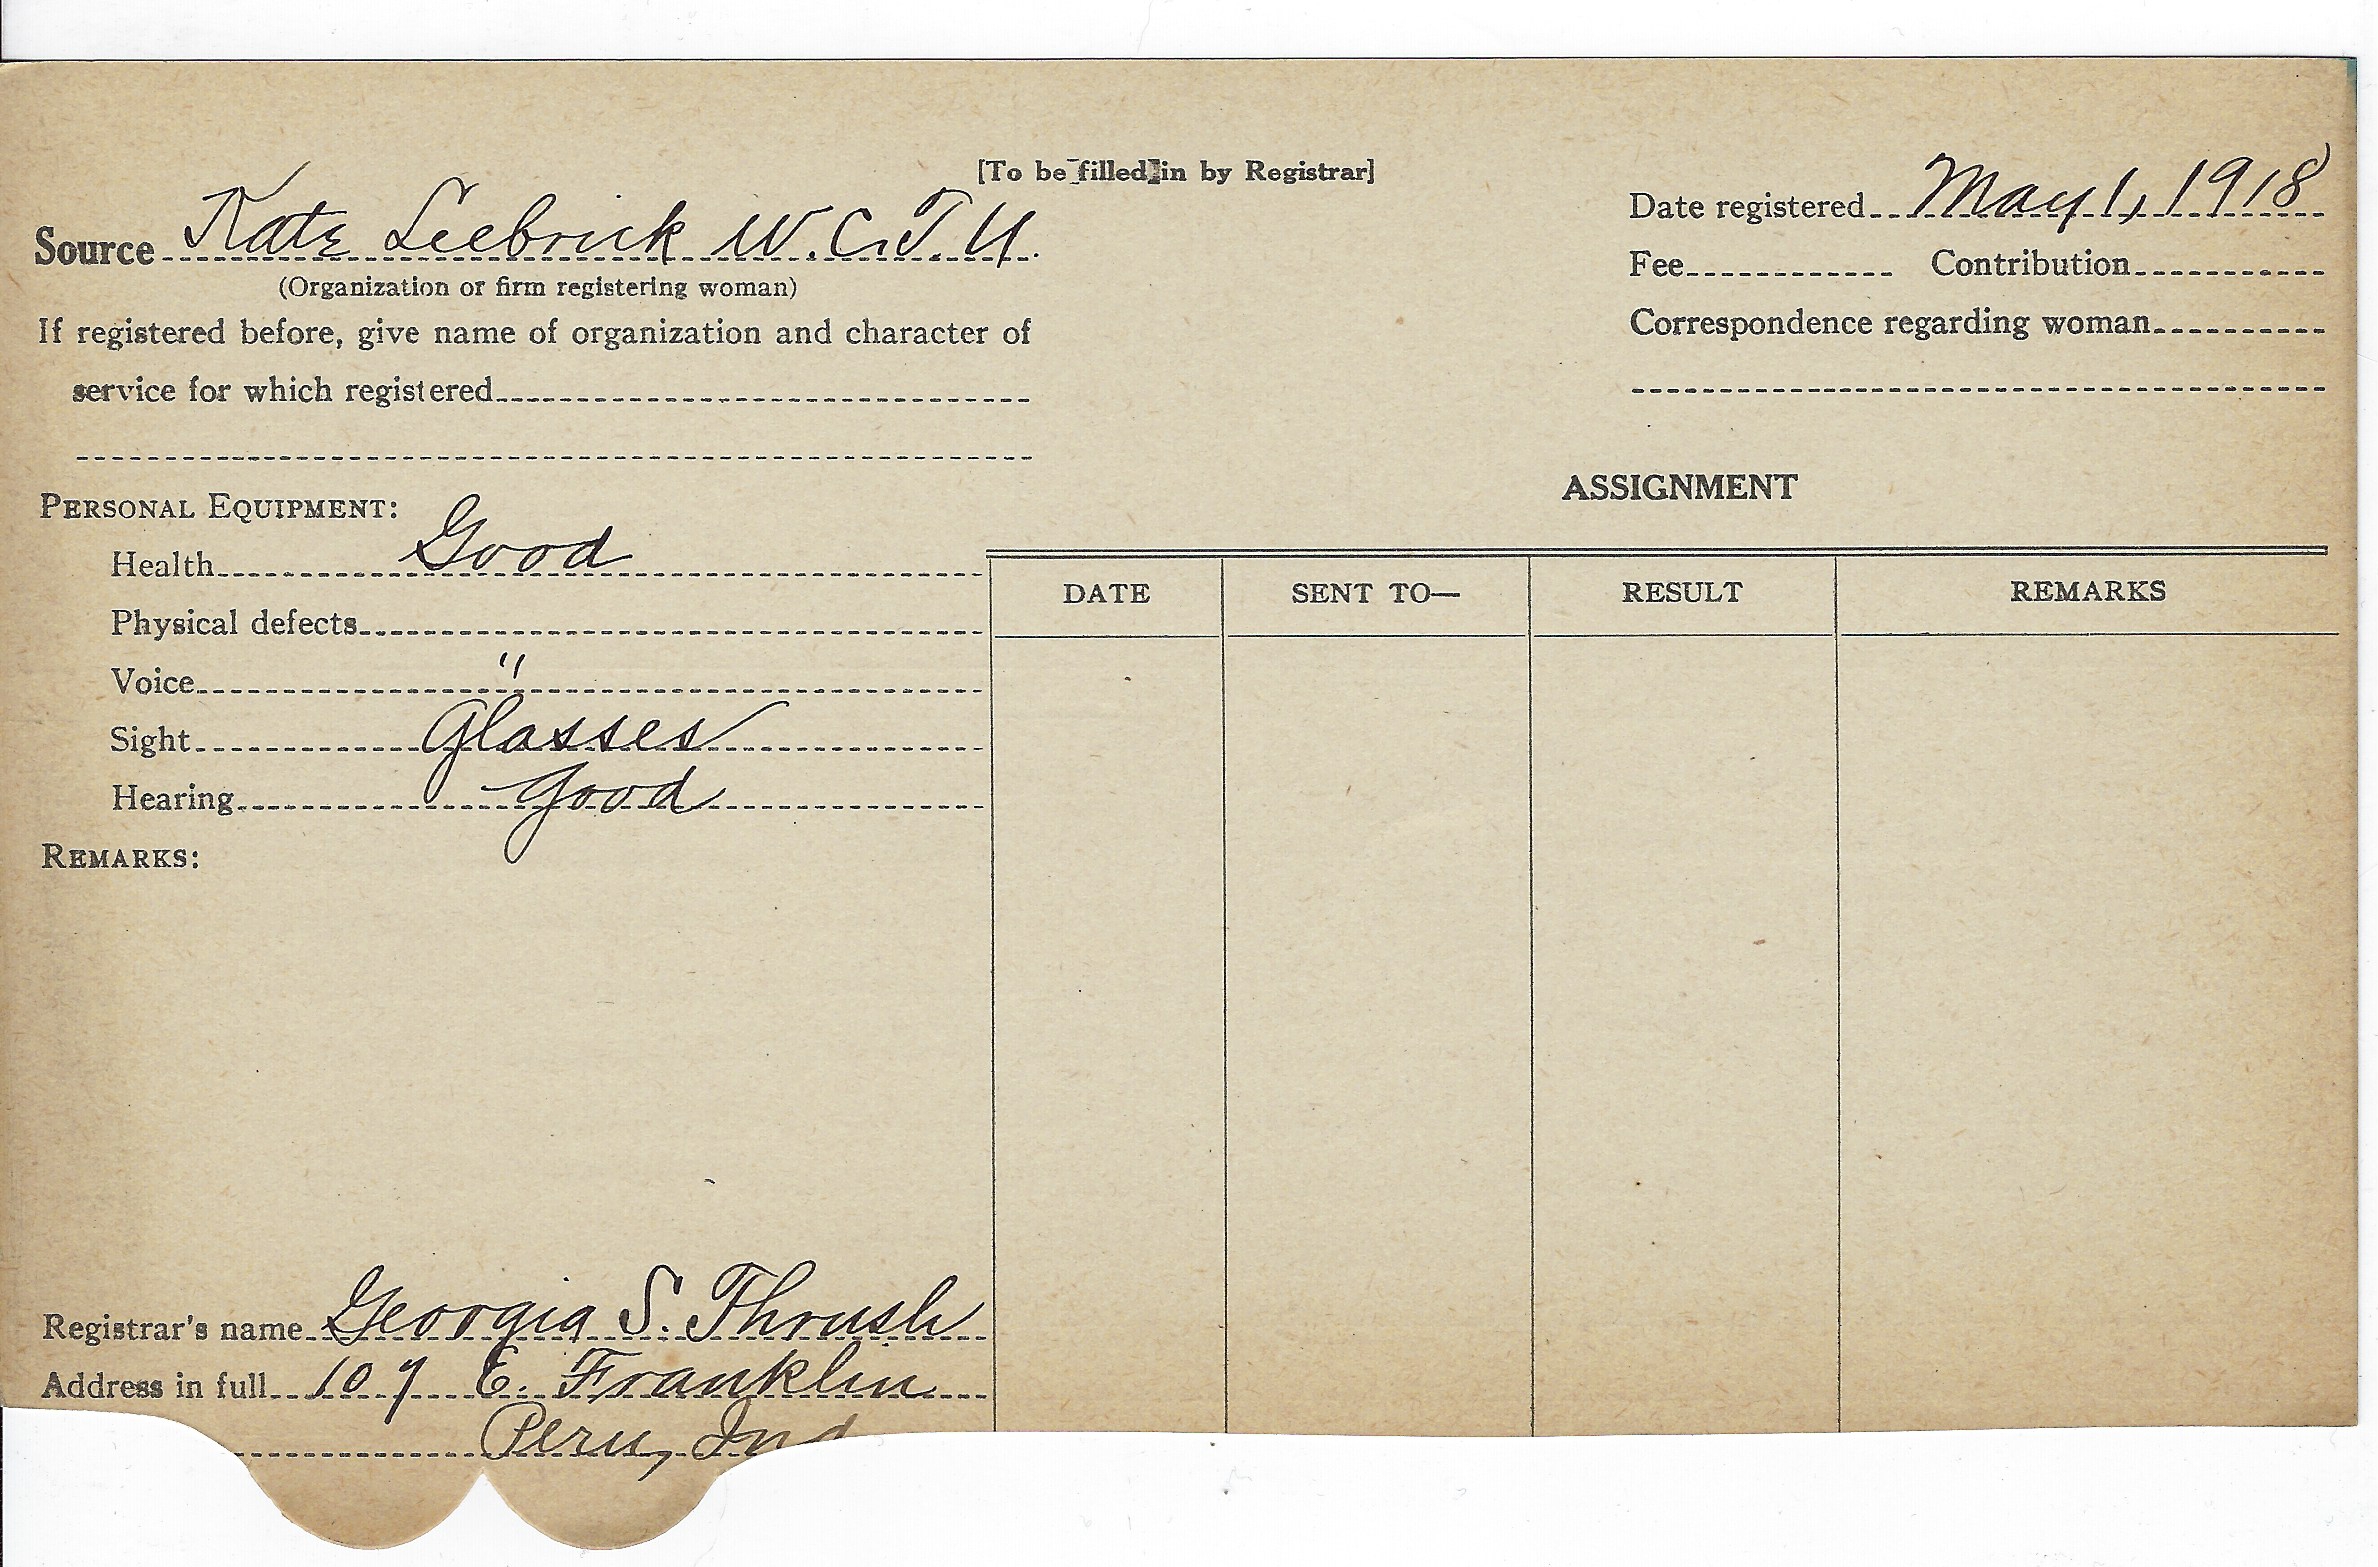 [To be filled in by Registrar]
Source Kate Leebrick W.C.T.U.
(Organization or firm registering woman)
If registered before, give name of organization and character of
service for which registered
Date registered May 1, 1918
Fee Contribution
Correspondence regarding woman
PERSONAL EQUIPMENT:
Health Good
Physical defects
Voice "
Sight Glasses
Hearing Good
REMARKS:
ASSIGNMENT
DATE SENT TO— RESULT REMARKS
Registrar's name Georgia S. Thrush
Address in full 107 E. Franklin
Peru, Ind